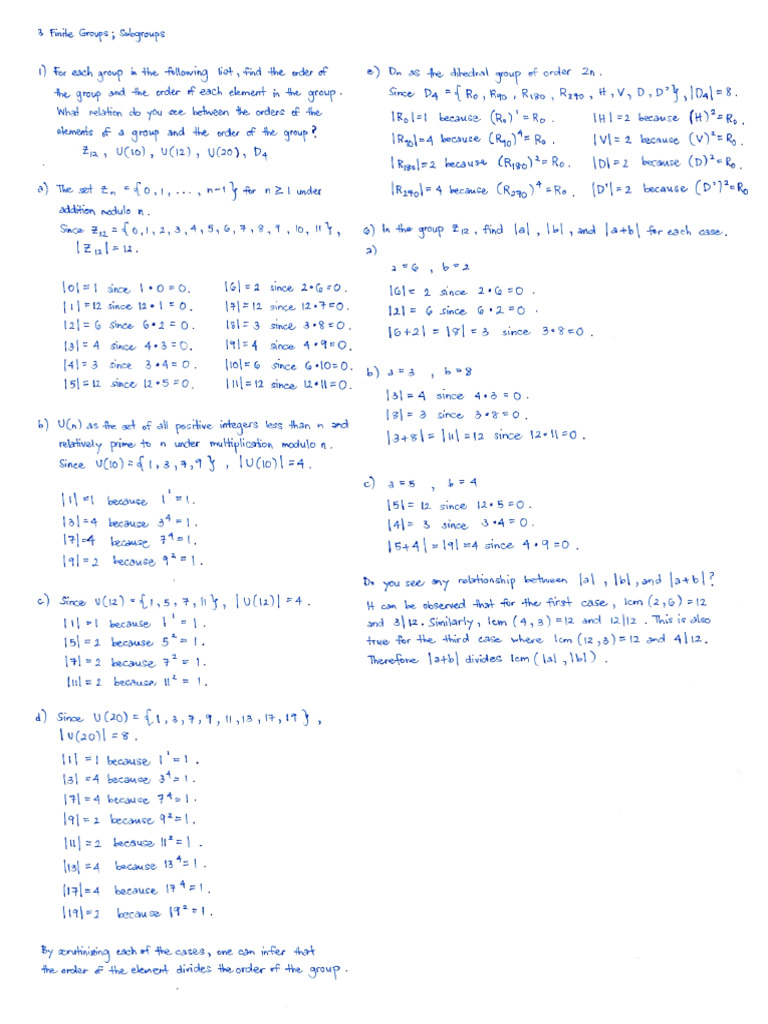 3 Finite Groups; Subgroups
1) For each group in the following list, find the order of
the group and the order of each element in the group.
What relation do you see between the orders of the
elements of a group and the order of the group?
Z₁₂, U(10), U(12), U(20), D₄
a) The set Zn = {0, 1, ..., n-1} for n ≥ 1 under
addition modulo n.
Since Z₁₂ = {0, 1, 2, 3, 4, 5, 6, 7, 8, 9, 10, 11},
|Z₁₂| = 12.
|0| = 1 since 1•0 = 0.
|1| = 12 since 12•1 = 0.
|2| = 6 since 6•2 = 0.
|3| = 4 since 4•3 = 0.
|4| = 3 since 3•4 = 0.
|5| = 12 since 12•5 = 0.
|6| = 2 since 2•6 = 0.
|7| = 12 since 12•7 = 0.
|8| = 3 since 3•8 = 0.
|9| = 4 since 4•9 = 0.
|10| = 6 since 6•10 = 0.
|11| = 12 since 12•11 = 0.
b) U(n) as the set of all positive integers less than n and
relatively prime to n under multiplication modulo n.
Since U(10) = {1, 3, 7, 9}, |U(10)| = 4.
|1| = 1 because 1¹ = 1.
|3| = 4 because 3⁴ = 1.
|7| = 4 because 7⁴ = 1.
|9| = 2 because 9² = 1.
c) Since U(12) = {1, 5, 7, 11}, |U(12)| = 4.
|1| = 1 because 1¹ = 1.
|5| = 2 because 5² = 1.
|7| = 2 because 7² = 1.
|11| = 2 because 11² = 1.
d) Since U(20) = {1, 3, 7, 9, 11, 13, 17, 19},
|U(20)| = 8.
|1| = 1 because 1¹ = 1.
|3| = 4 because 3⁴ = 1.
|7| = 4 because 7⁴ = 1.
|9| = 2 because 9² = 1.
|11| = 2 because 11² = 1.
|13| = 4 because 13⁴ = 1.
|17| = 4 because 17⁴ = 1.
|19| = 2 because 19² = 1.
By scrutinizing each of the cases, one can infer that
the order of the element divides the order of the group.
e) Dn as the dihedral group of order 2n.
Since D₄ = {R₀, R₉₀, R₁₈₀, R₂₇₀, H, V, D, D'}, |D₄| = 8.
|R₀| = 1 because (R₀)¹ = R₀.
|R₉₀| = 4 because (R₉₀)⁴ = R₀.
|R₁₈₀| = 2 because (R₁₈₀)² = R₀.
|R₂₇₀| = 4 because (R₂₇₀)⁴ = R₀.
|H| = 2 because (H)² = R₀
|V| = 2 because (V)² = R₀.
|D| = 2 because (D)² = R₀.
|D'| = 2 because (D')² = R₀
6) In the group Z₁₂, find |a|, |b|, and |a+b| for each case.
a)
a = 6, b = 2
|6| = 2 since 2•6 = 0.
|2| = 6 since 6•2 = 0.
|6+2| = |8| = 3 since 3•8 = 0.
b) a = 3, b = 8
|3| = 4 since 4•3 = 0.
|8| = 3 since 3•8 = 0.
|3+8| = |11| = 12 since 12•11 = 0.
c) a = 5, b = 4
|5| = 12 since 12•5 = 0.
|4| = 3 since 3•4 = 0.
|5+4| = |9| = 4 since 4•9 = 0.
Do you see any relationship between |a|, |b|, and |a+b|?
It can be observed that for the first case, lcm (2,6) = 12
and 3|12. Similarly, lcm (4,3) = 12 and 12|12. This is also
true for the third case where lcm (12,3) = 12 and 4|12.
Therefore |a+b| divides lcm (|a|, |b|).